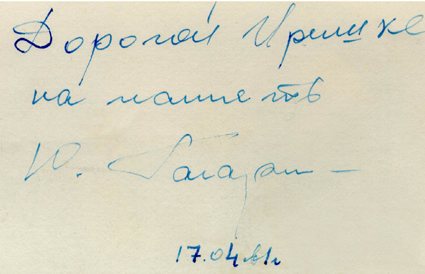 Дорогой Иришке
на память
Ю. Гагарин
17.04.61г.